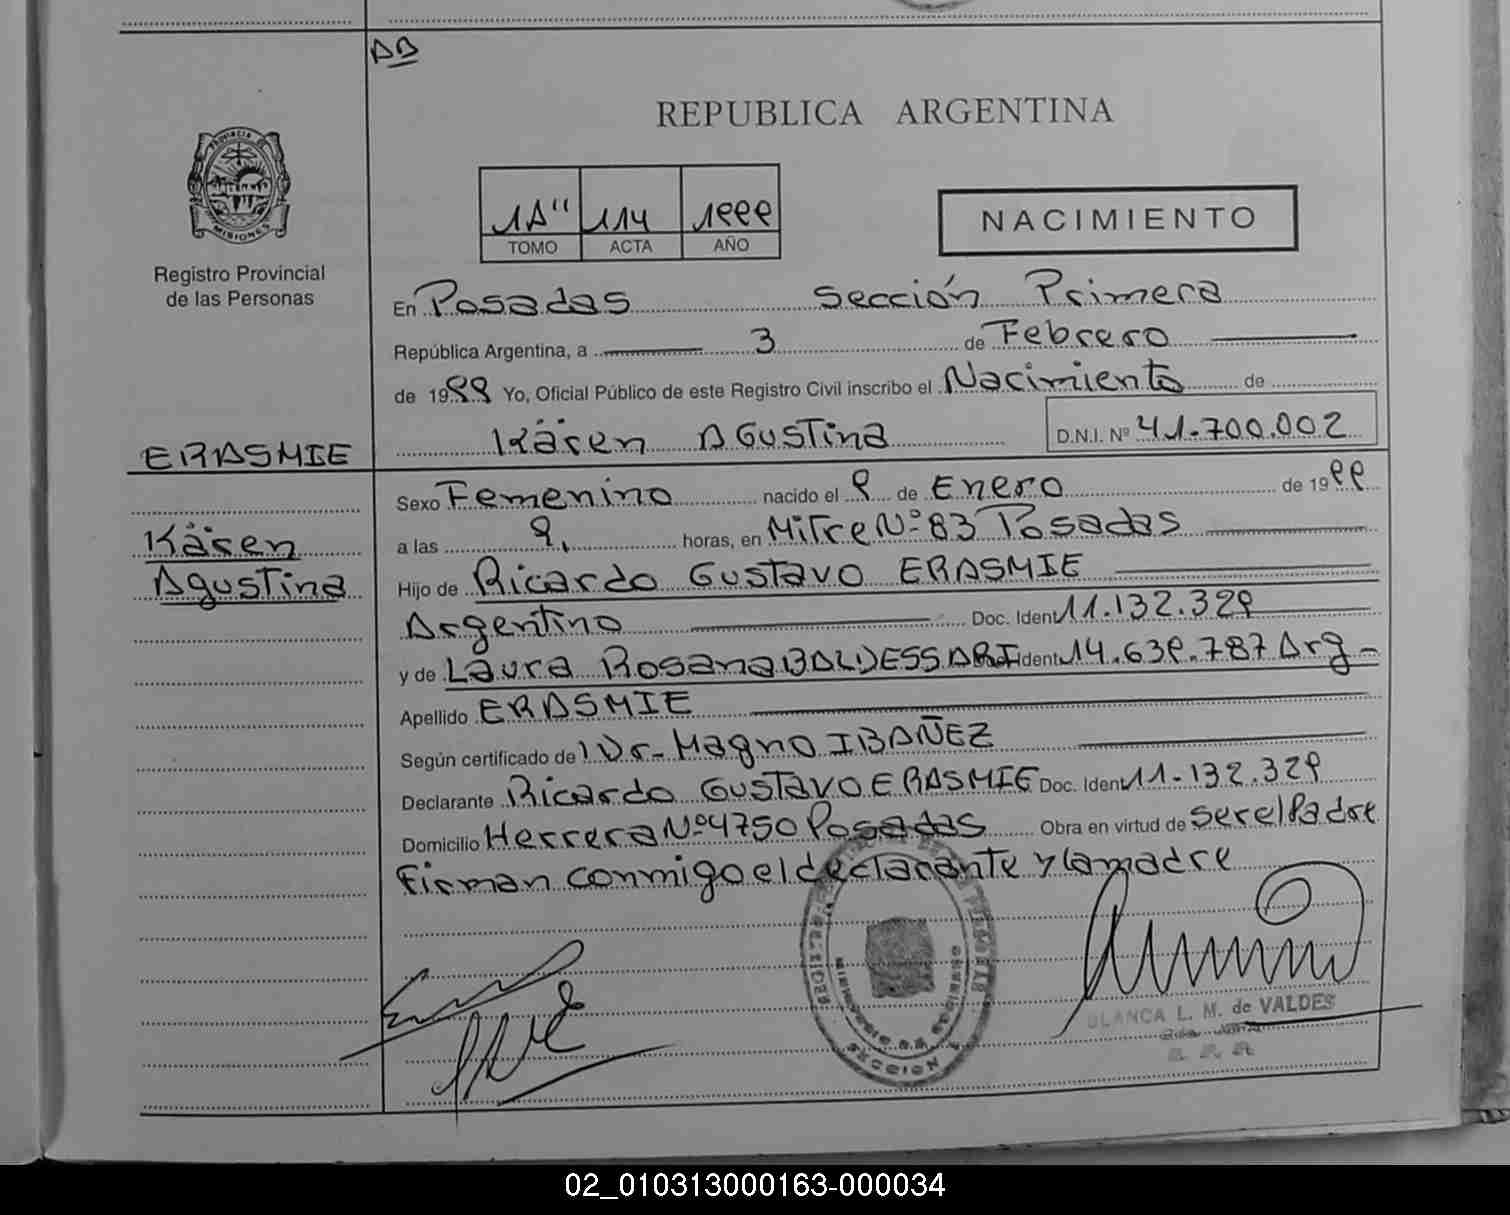 AB
PROVINCIA DE
MISIONES
Registro Provincial
de las Personas
REPUBLICA ARGENTINA
1A" 114 1999
TOMO ACTA AÑO
NACIMIENTO
En Posadas Sección Primera
República Argentina, a 3 de Febrero
de 1999 Yo, Oficial Público de este Registro Civil inscribo el Nacimiento de
Kären Agustina D.N.I. Nº 41.700.002
ERASMIE
Kären
Agustina
Sexo Femenino nacido el 9 de Enero de 1999
a las 9, horas, en Mitre Nº 83 Posadas
Hijo de Ricardo Gustavo ERASMIE
Argentino Doc. Ident 11.132.329
y de Laura Rosana BALDESSARI Ident 14.639.787 Arg-
Apellido ERASMIE
Según certificado de Dr. Magno IBAÑEZ
Declarante Ricardo Gustavo ERASMIE Doc. Ident 11.132.329
Domicilio Herrera Nº 4750 Posadas Obra en virtud de ser el Padre
Firman conmigo el declarante y la madre
SECCION
BLANCA L. M. de VALDES
02_010313000163-000034